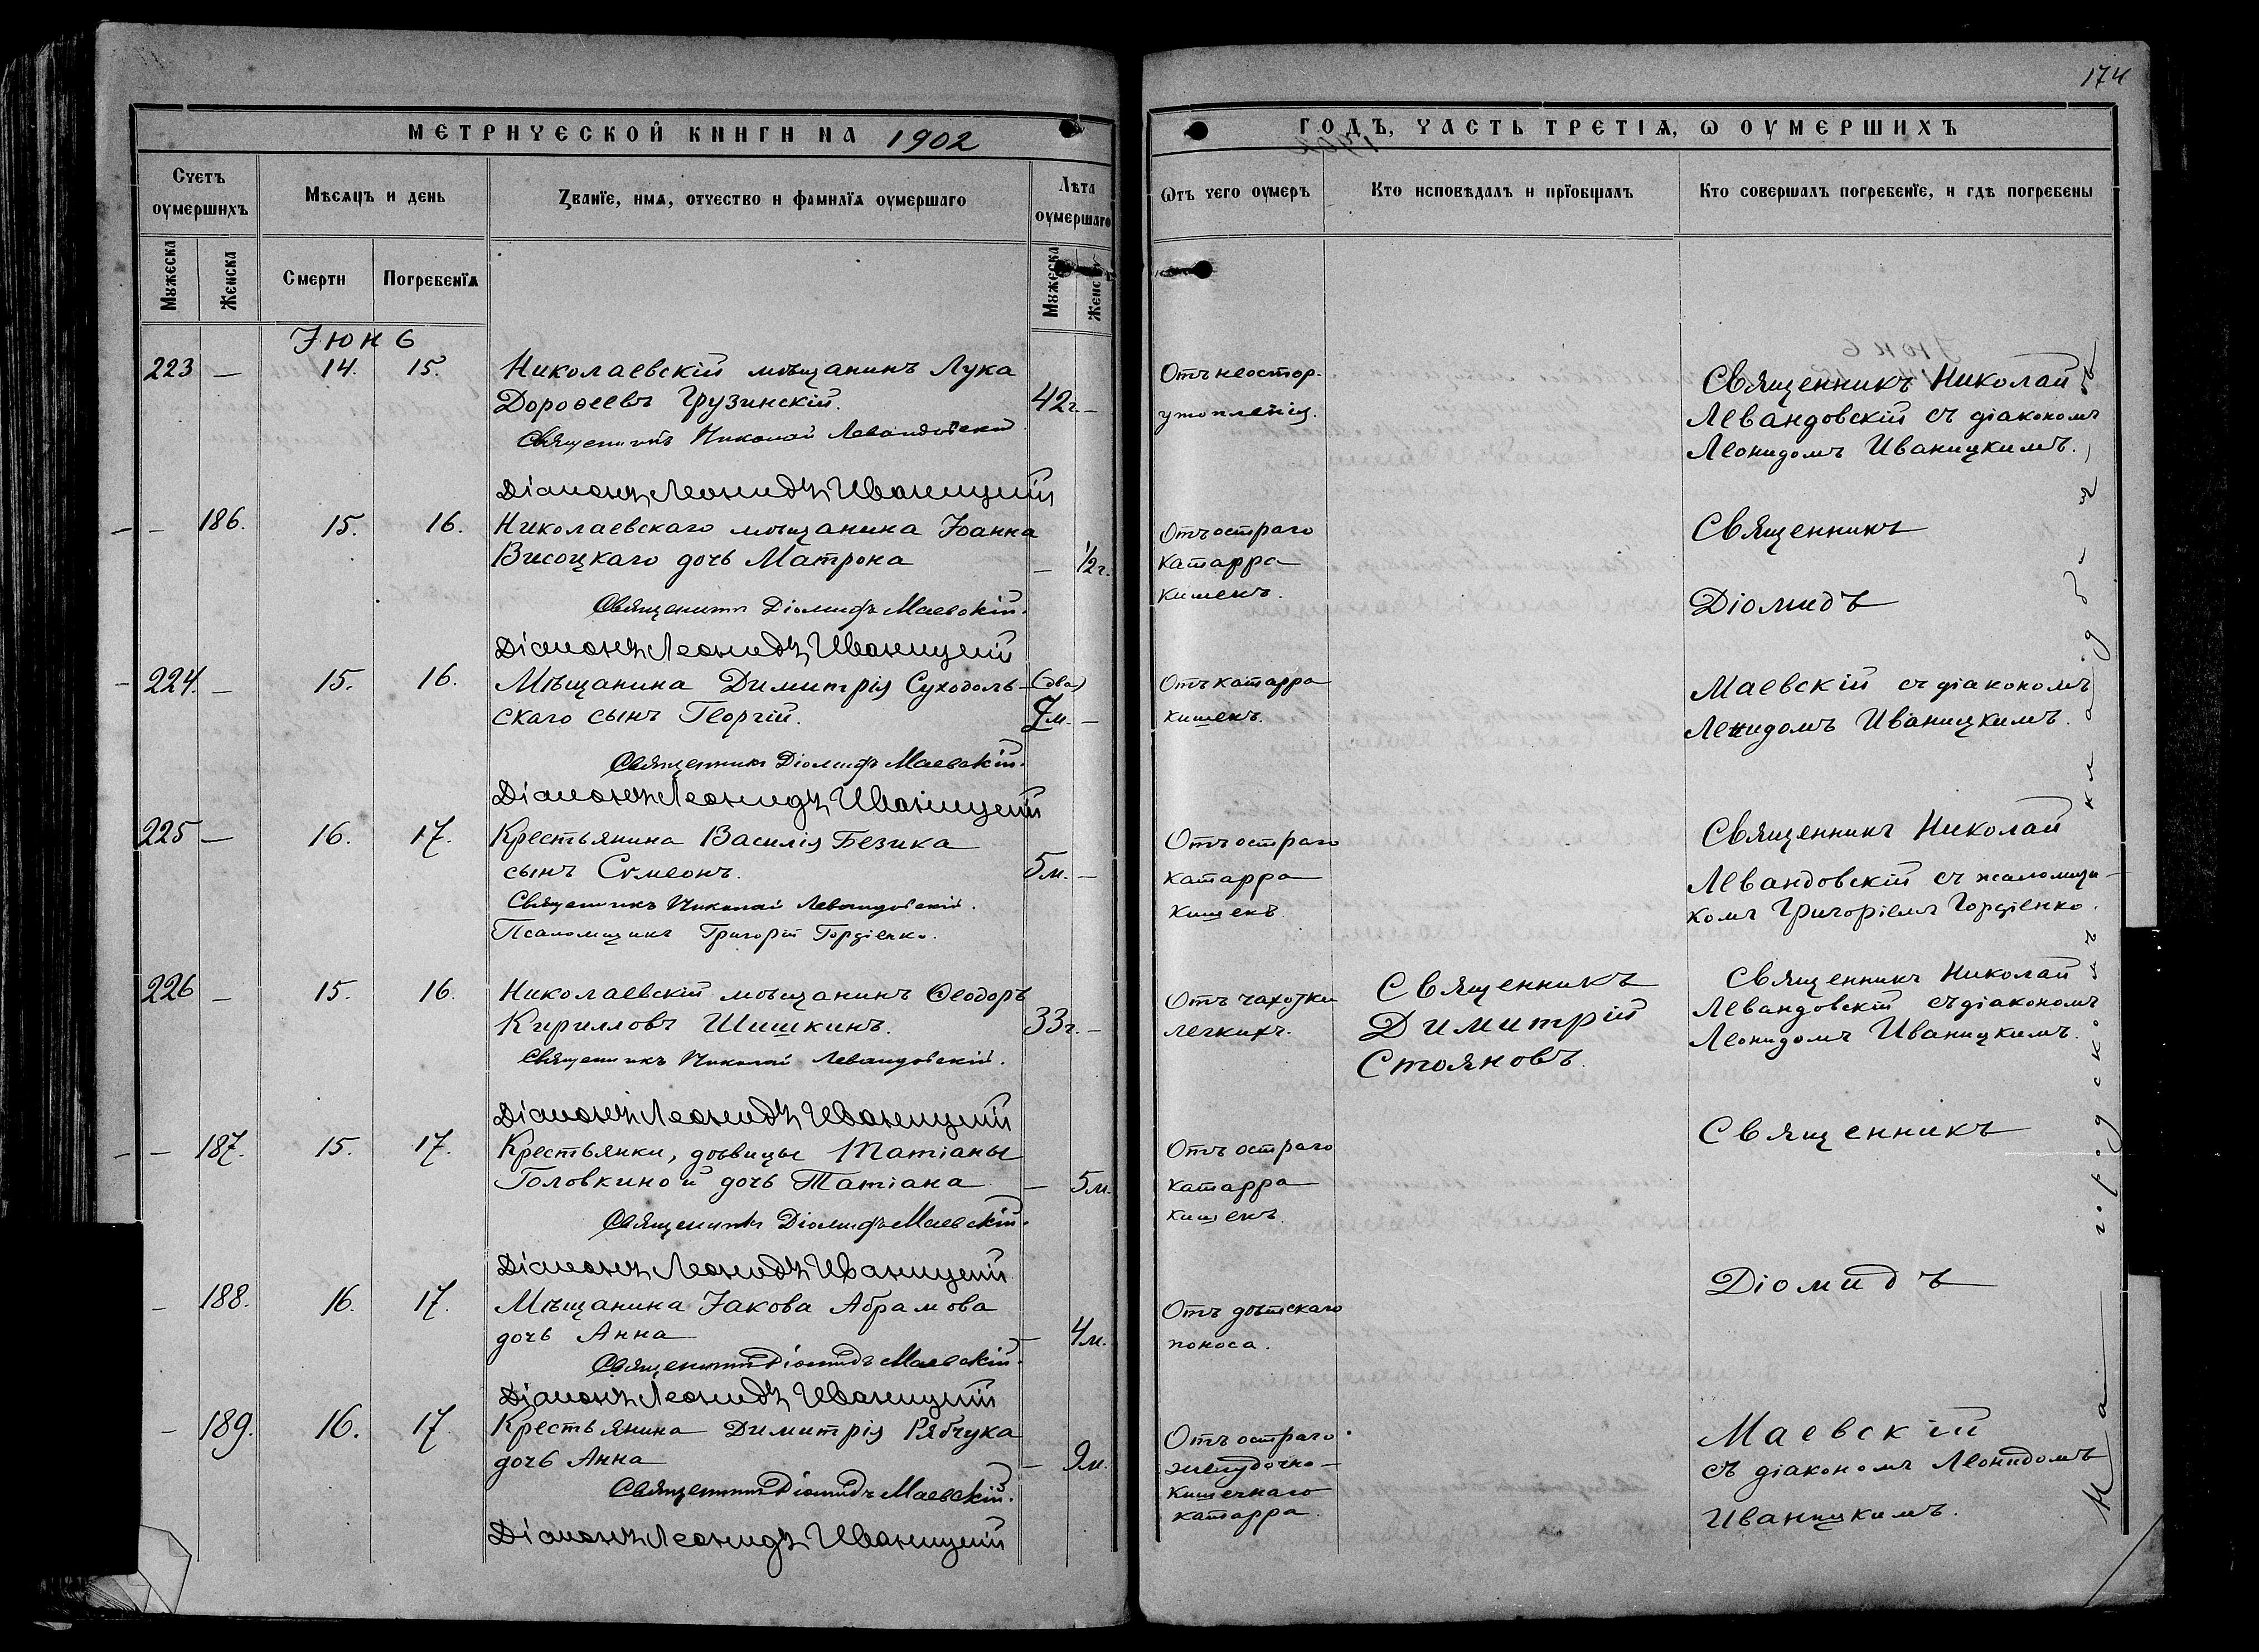 174
МЕТРИЧЕСКОЙ КНИГИ НА 1902
ГОДЪ, ЧАСТЬ ТРЕТІѦ, Ѡ ОУМЕРШИХЪ
Счетъ оумершихъ
Мѣсѧцъ и день
Званїе, имѧ, отчество и фамилїѧ оумершаго
Лѣта оумершаго
Ѿтъ чего оумеръ
Кто исповѣдалъ и прїобщалъ
Кто совершалъ погребенїе, и гдѣ погребены
Мꙋжеска
Женска
Смерти
Погребенїѧ
Мꙋжеска
Женс
Іюнь
223 — 14. 15. Николаевскій мѣщанинъ Лука
Дороѳеевъ Грузинскій. 42 г. —
Священникъ Николай Левандовскій
Діаконъ Леонидъ Иваницкій
Отъ неостор.
утопленія.
Священникъ Николай
Левандовскій съ діакономъ
Леонидомъ Иваницкимъ.
— 186. 15. 16. Николаевскаго мѣщанина Іоанна
Висоцкаго дочь Матрона — ½ г.
Священникъ Діомидъ Маевскій.
Діаконъ Леонидъ Иваницкій
Отъ остраго
катарра
кишекъ.
Священникъ
Діомидъ
224. — 15. 16. Мѣщанина Димитрія Суходоль- (два)
скаго сынъ Георгій. 2 м. —
Священникъ Діомидъ Маевскій.
Діаконъ Леонидъ Иваницкій
Отъ катарра
кишекъ.
Маевскій съ діакономъ
Леонидомъ Иваницкимъ.
225 — 16. 17. Крестьянина Василія Безика
сынъ Сѵмеонъ. 5 м. —
Священникъ Николай Левандовскій.
Псаломщикъ Григорій Гордіенко.
Отъ остраго
катарра
кишекъ.
Священникъ Николай
Левандовскій съ псаломщи-
комъ Григоріемъ Гордіенко.
226 — 15. 16. Николаевскій мѣщанинъ Ѳеодоръ
Кирилловъ Шишкинъ. 33 г. —
Священникъ Николай Левандовскій.
Діаконъ Леонидъ Иваницкій
Отъ чахотки
легкихъ.
Священникъ
Димитрій
Стояновъ.
Священникъ Николай
Левандовскій съ діакономъ
Леонидомъ Иваницкимъ.
— 187. 15. 17. Крестьянки, дѣвицы Татіаны
Головкиной дочь Татіана — 5 м.
Священникъ Діомидъ Маевскій.
Діаконъ Леонидъ Иваницкій
Отъ остраго
катарра
кишекъ.
Священникъ
— 188. 16. 17. Мѣщанина Іакова Абрамова
дочь Анна — 4 м.
Священникъ Діомидъ Маевскій.
Діаконъ Леонидъ Иваницкій
Отъ дѣтскаго
поноса.
Діомидъ
— 189. 16. 17. Крестьянина Димитрія Рябчука
дочь Анна — 9 м.
Священникъ Діомидъ Маевскій.
Діаконъ Леонидъ Иваницкій
Отъ остраго
желудочно-
кишечнаго
катарра.
Маевскій
съ діакономъ Леонидомъ
Иваницкимъ.
На городскомъ кладбищѣ